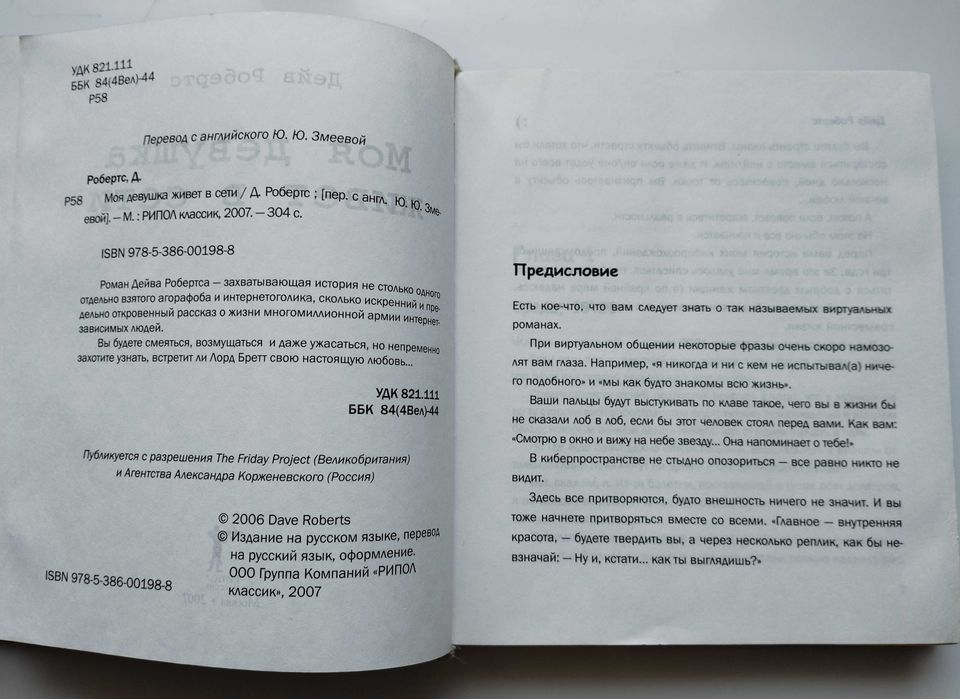 УДК 821.111
ББК 84(4Вел)-44
Р58
Перевод с английского Ю. Ю. Змеевой
Робертс, Д.
Р58 Моя девушка живет в сети / Д. Робертс ; [пер. с англ. Ю. Ю. Зме-
евой]. — М. : РИПОЛ классик, 2007. — 304 с.
ISBN 978-5-386-00198-8
Роман Дейва Робертса — захватывающая история не столько одного
отдельно взятого агорафоба и интернетоголика, сколько искренний и пре-
дельно откровенный рассказ о жизни многомиллионной армии интернет-
зависимых людей.
Вы будете смеяться, возмущаться и даже ужасаться, но непременно
захотите узнать, встретит ли Лорд Бретт свою настоящую любовь...
УДК 821.111
ББК 84(4Вел)-44
Публикуется с разрешения The Friday Project (Великобритания)
и Агентства Александра Корженевского (Россия)
© 2006 Dave Roberts
© Издание на русском языке, перевод
на русский язык, оформление.
ООО Группа Компаний «РИПОЛ
классик», 2007
ISBN 978-5-386-00198-8
Предисловие
Есть кое-что, что вам следует знать о так называемых виртуальных
романах.
При виртуальном общении некоторые фразы очень скоро намозо-
лят вам глаза. Например, «я никогда и ни с кем не испытывал(а) ниче-
го подобного» и «мы как будто знакомы всю жизнь».
Ваши пальцы будут выстукивать по клаве такое, чего вы в жизни бы
не сказали лоб в лоб, если бы этот человек стоял перед вами. Как вам:
«Смотрю в окно и вижу на небе звезду... Она напоминает о тебе!»
В киберпространстве не стыдно опозориться — все равно никто не
видит.
Здесь все притворяются, будто внешность ничего не значит. И вы
тоже начнете притворяться вместе со всеми. «Главное — внутренняя
красота, — будете твердить вы, а через несколько реплик, как бы не-
взначай: — Ну и, кстати... как ты выглядишь?»